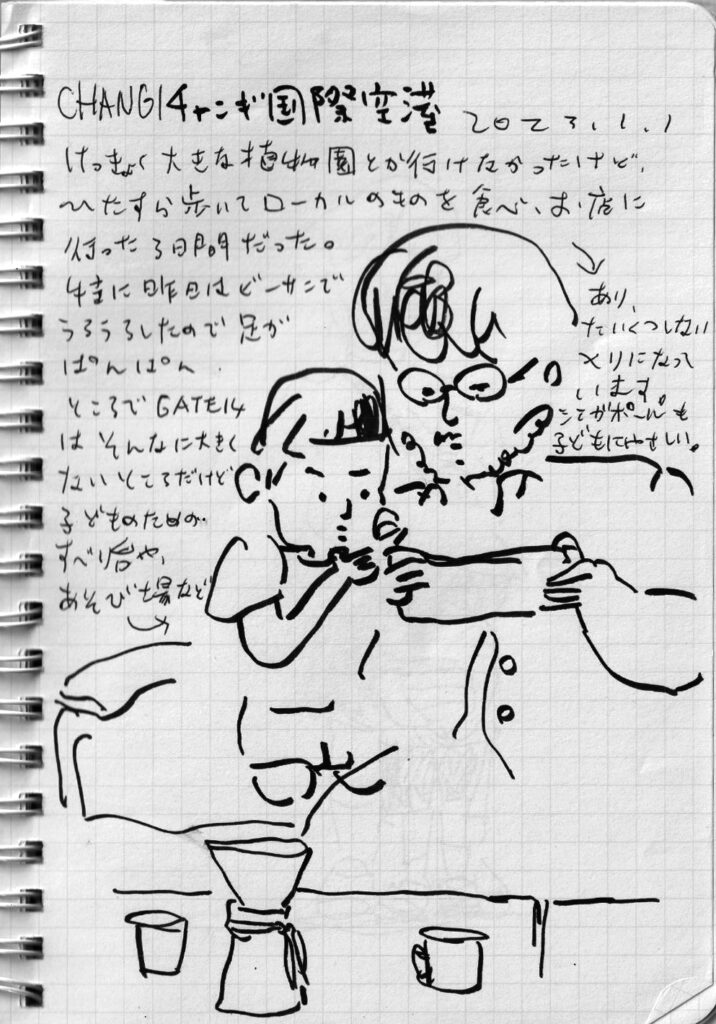 CHANGI チャンギ国際空港 2023.1.1
けっきょく大きな植物園とか行けなかったけど、
ひたすら歩いてローカルのものを食べ、お店に
行った3日間だった。
特に昨日はビーサンで
うろうろしたので足が
ぱんぱん.
ところでGATE14
はそんなに大きく
ないところだけど
子どものための
すべり台や、
あそび場など
あり、
たいくつしない
つくりになって
います。
シンガポールも
子どもにやさしい。